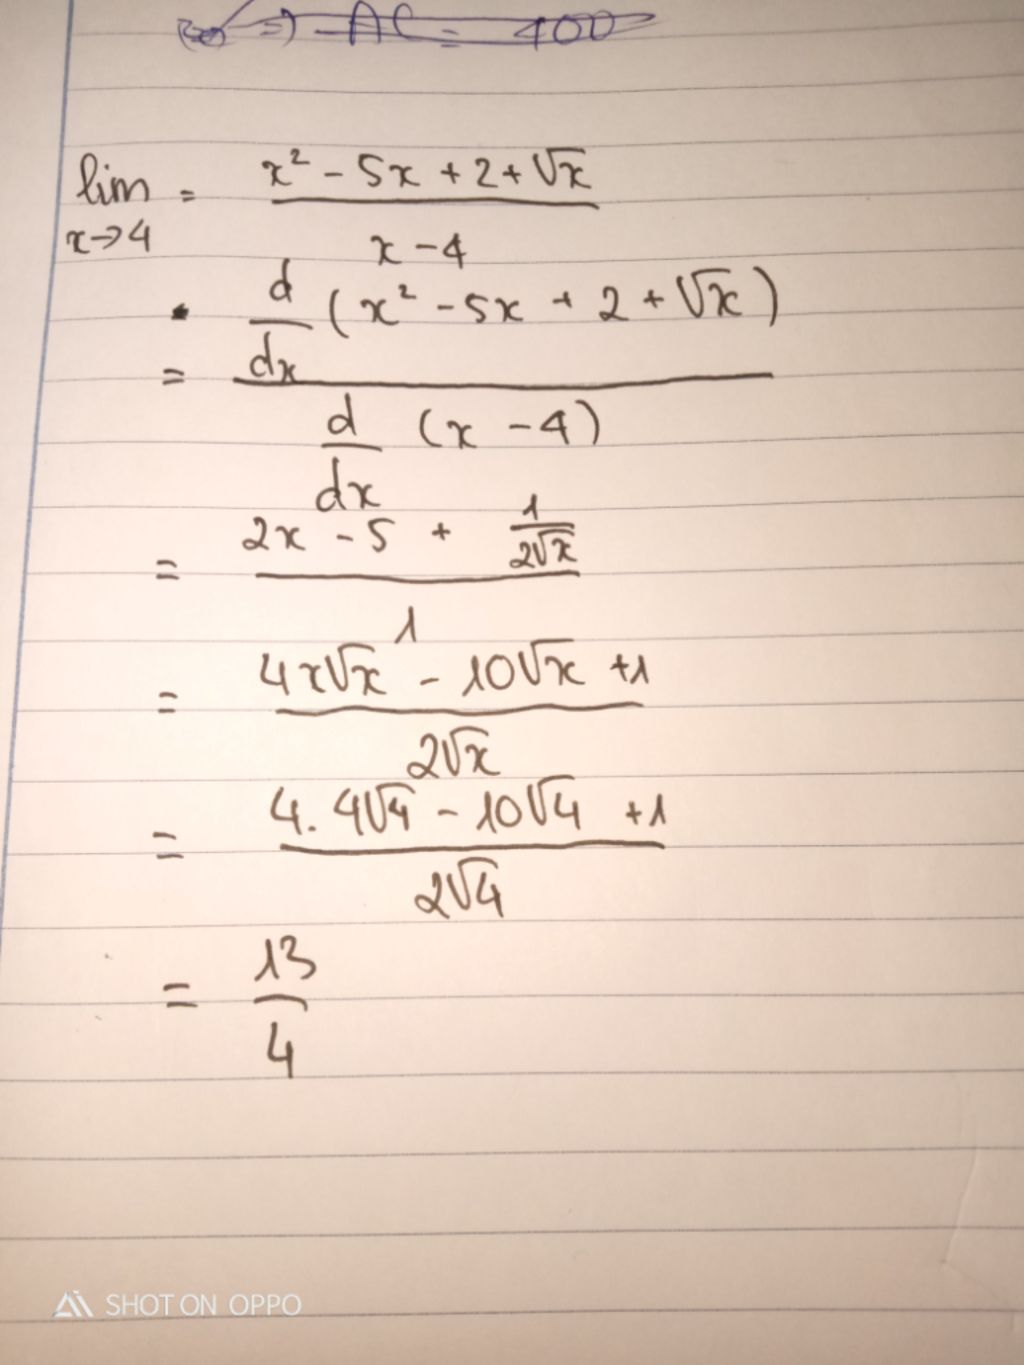 =) -AC = 400
lim x→4 = (x² - 5x + 2 + √x) / (x - 4)
= (d/dx (x² - 5x + 2 + √x)) / (d/dx (x - 4))
= (2x - 5 + 1/(2√x)) / 1
= (4x√x - 10√x + 1) / (2√x)
= (4. 4√4 - 10√4 + 1) / (2√4)
= 13/4
SHOT ON OPPO